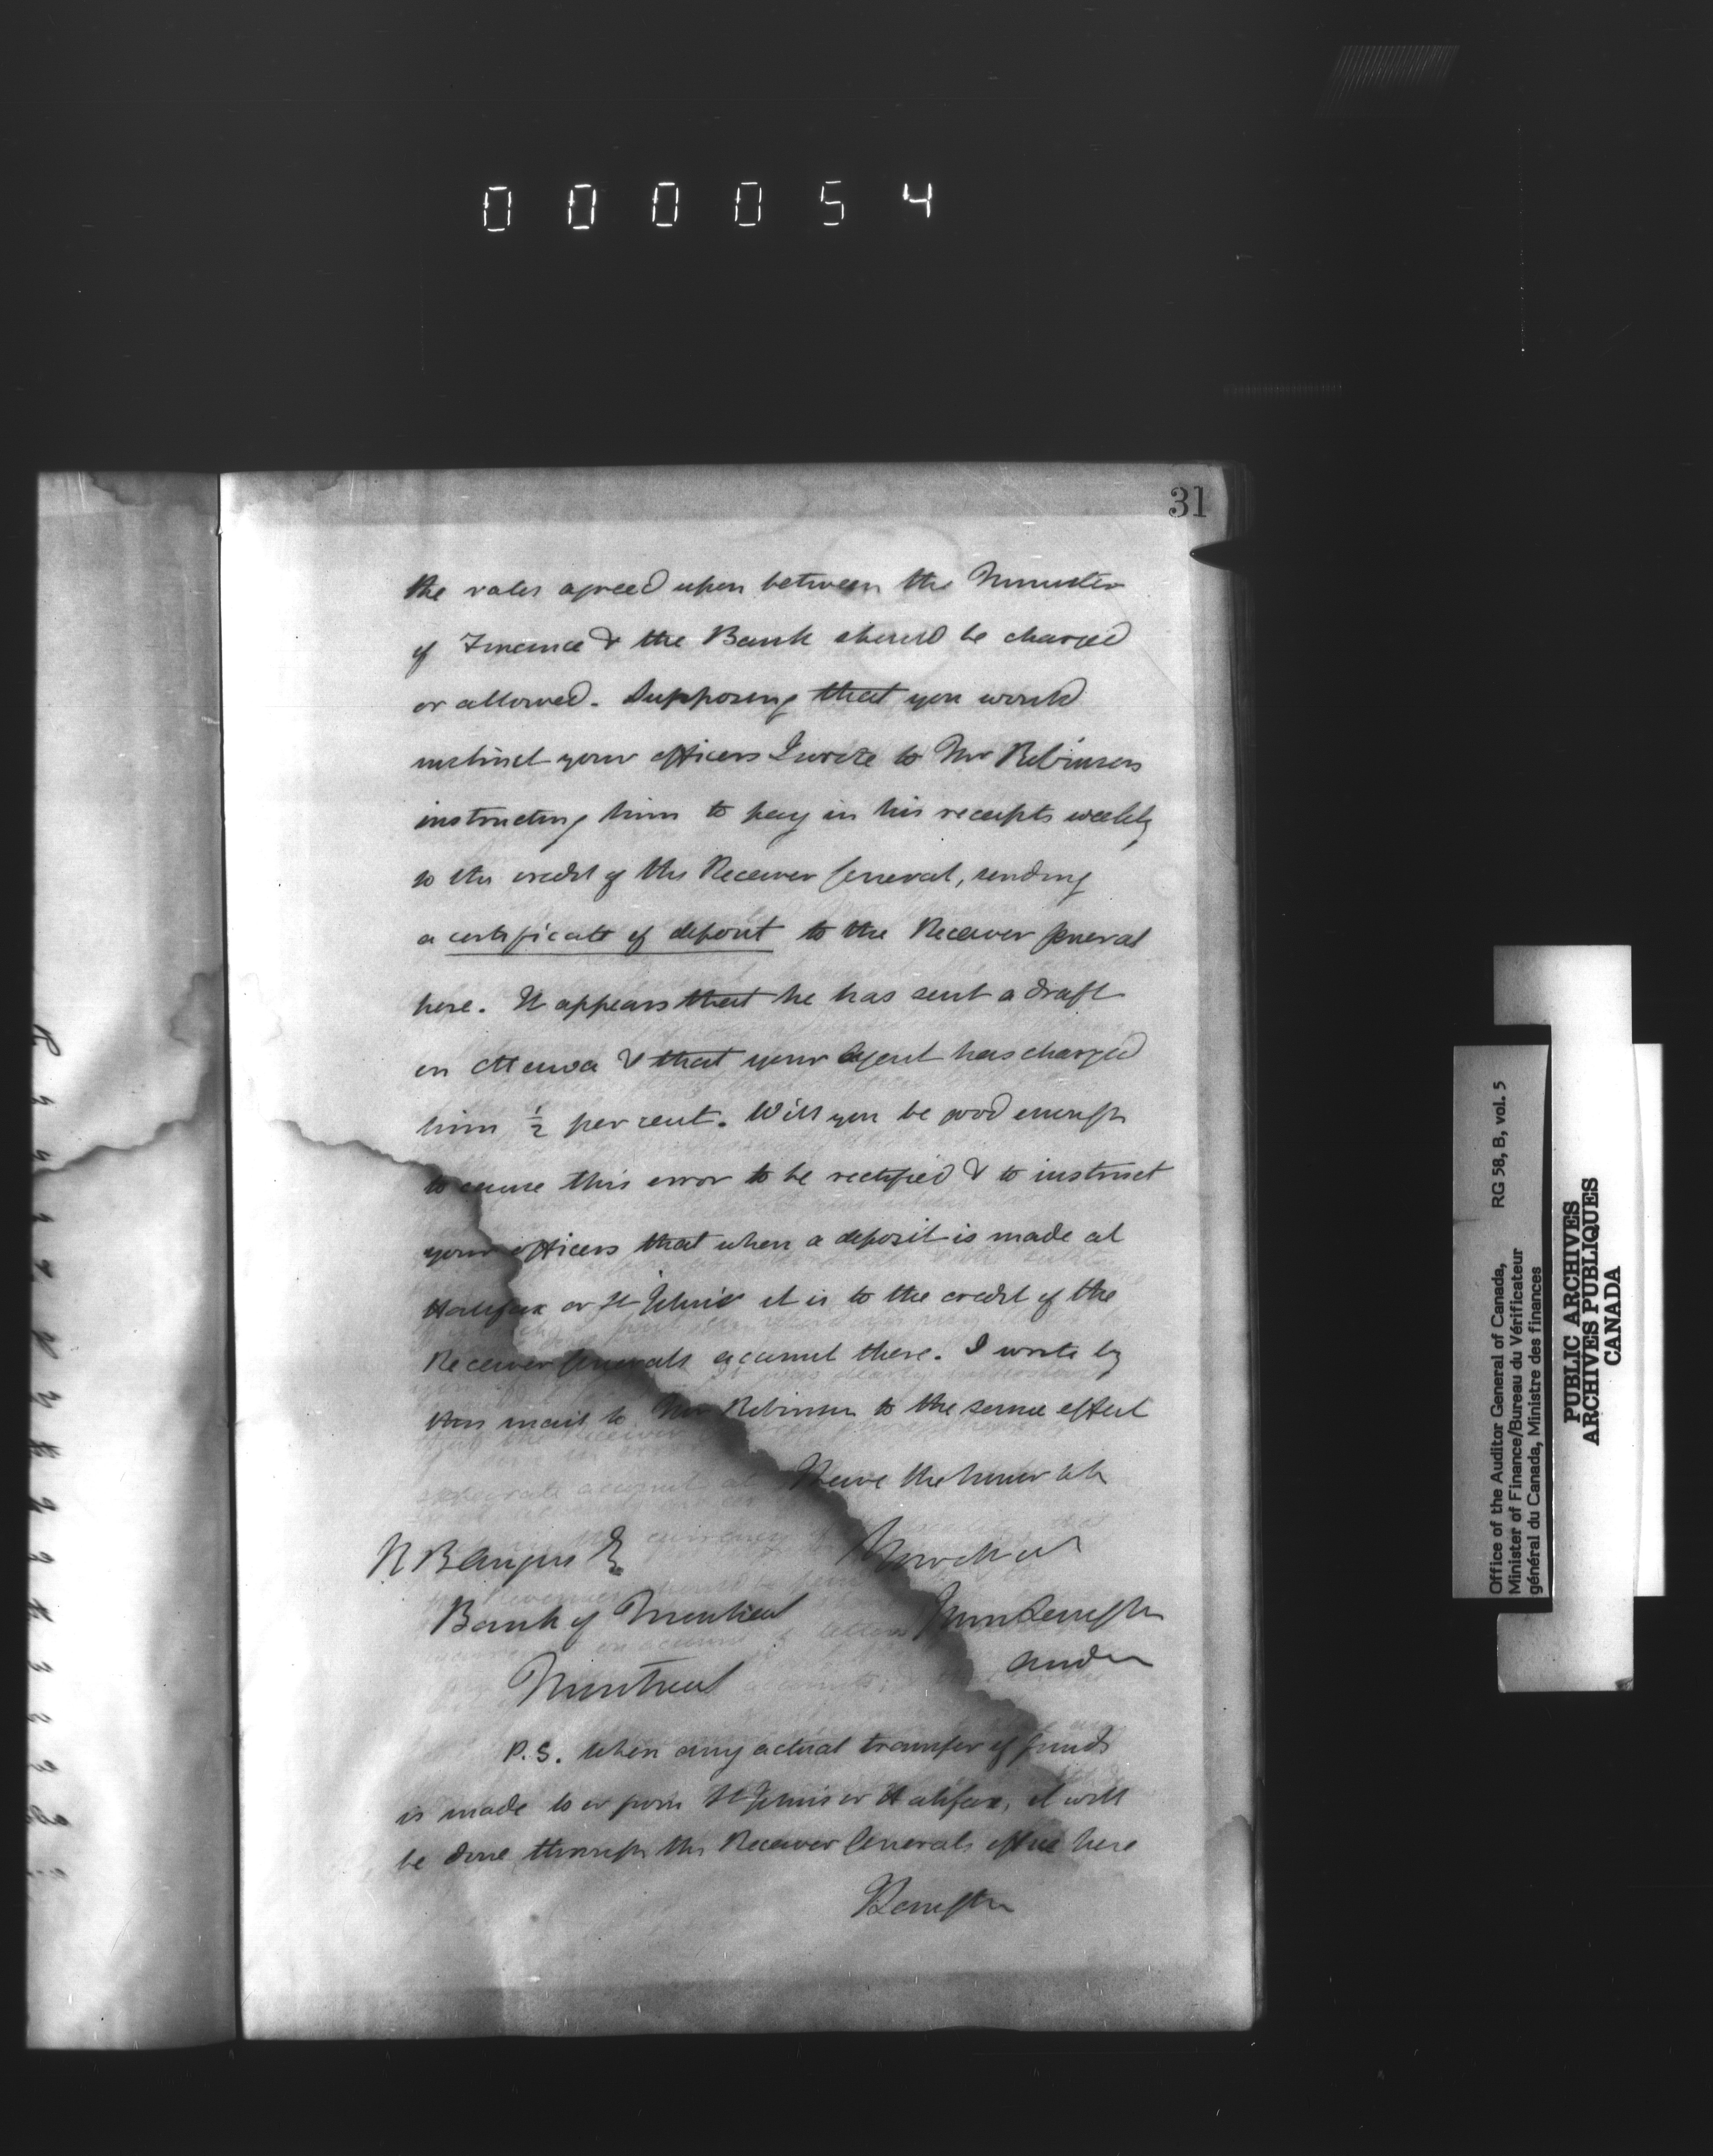 000054
31
the rates agreed upon between the Minister
of Finance & the Bank should be charged
or allowed. Supposing that you would
instruct your officers I wrote to Mr Robinson
instructing him to pay in his receipts weekly
to the credit of the Receiver General, sending
a certificate of deposit to the Receiver General
here. It appears that he has sent a draft
on Ottawa & that your Agent has charged
him ½ per cent. Will you be good enough
to cause this error to be rectified & to instruct
your officers that when a deposit is made at
Halifax or St John's it is to the credit of the
Receiver Generals account there. I write by
this mail to Mr Robinson to the same effect
I have the honor to be
R B Angus E
Bank of Montreal
John Langton
Auditor
Montreal
P.S. When any actual transfer of funds
is made to or from St Johns or Halifax, it will
be done through the Receiver Generals office here
J Langton
Office of the Auditor General of Canada, RG 58, B, vol. 5
Minister of Finance/Bureau du Vérificateur
général du Canada, Ministre des finances
PUBLIC ARCHIVES
ARCHIVES PUBLIQUES
CANADA